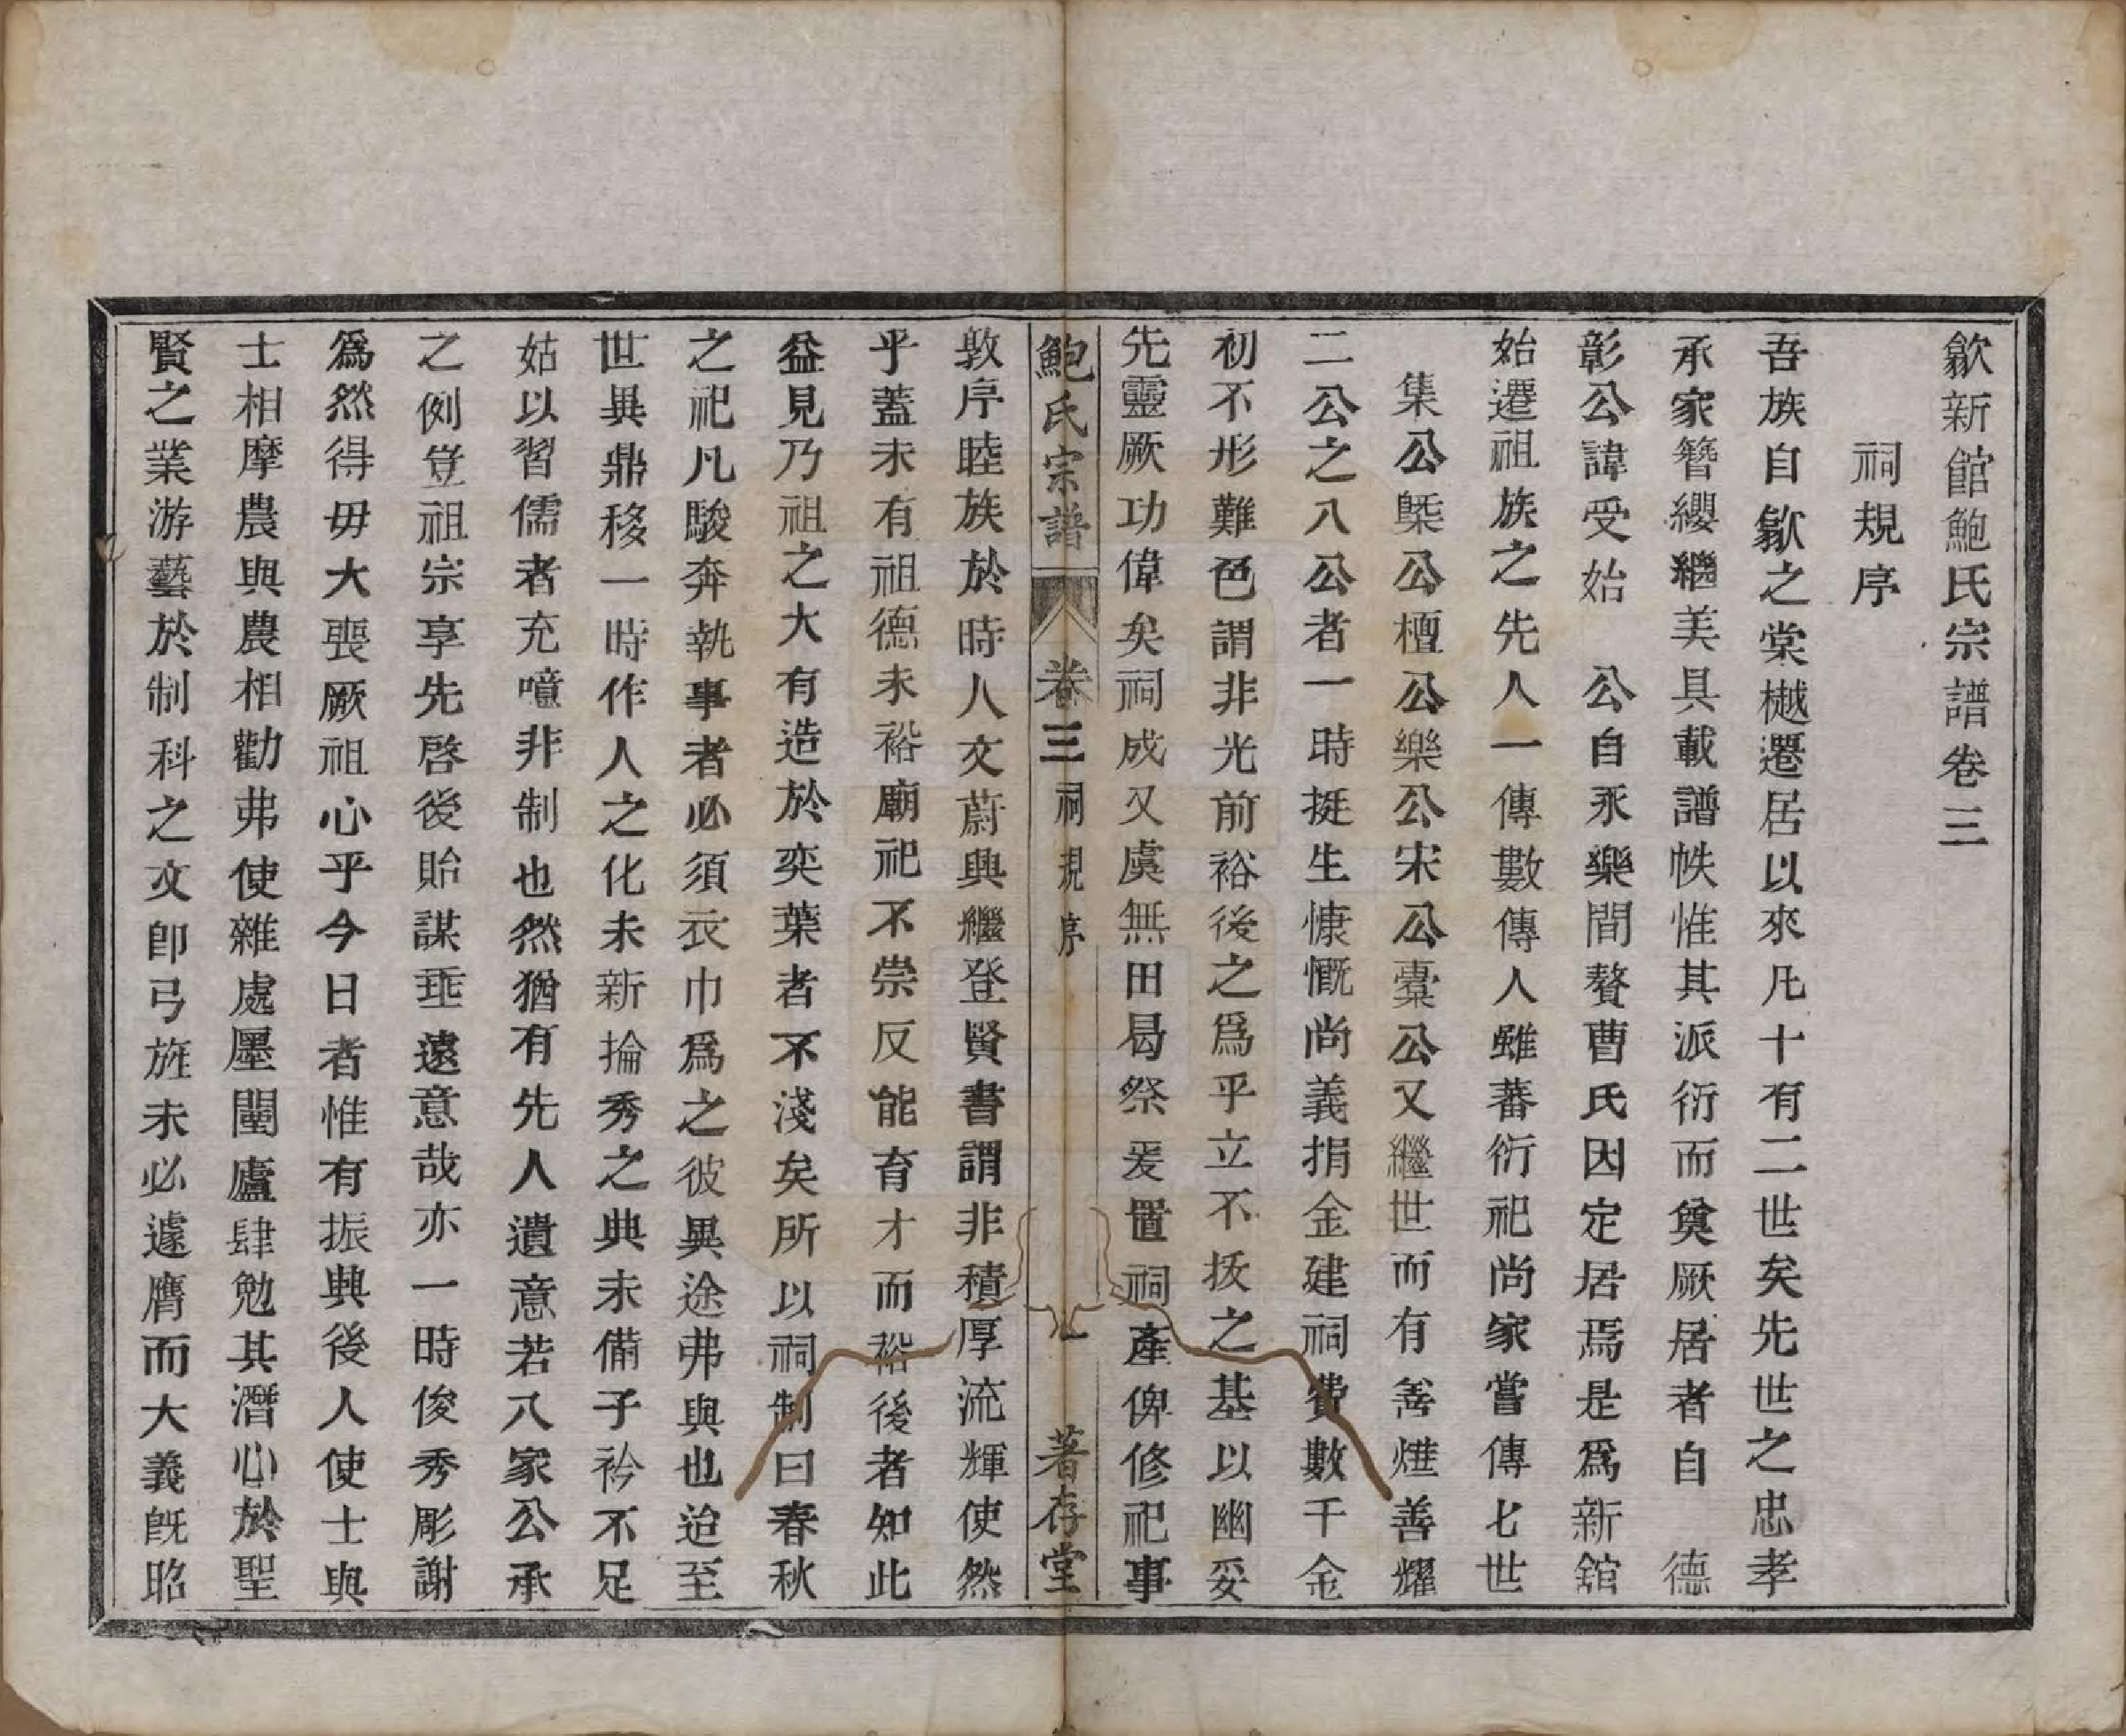 歙新館鮑氏宗譜卷三
祠規序
吾族自歙之棠樾遷居以來凡十有二世矣先世之忠孝
承家簪纓繼美具載譜帙惟其派衍而奠厥居者自　德
彰公諱受始　公自永樂間贅曹氏因定居焉是爲新舘
始遷祖族之先人一傳數傳人雖蕃衍祀尚家嘗傳七世
集公槩公檀公樂公宋公橐公又繼世而有善燁善耀
二公之八公者一時挺生慷慨尚義捐金建祠費數千金
初不形難色謂非光前裕後之爲乎立不拔之基以幽妥
先靈厥功偉矣祠成又虞無田曷祭爰置祠產俾修祀事
鮑氏宗譜　卷三　祠規序　一　著存堂
敦序睦族於時人文蔚興繼登賢書謂非積厚流輝使然
乎蓋未有祖德未裕廟祀不崇反能育才而裕後者知此
益見乃祖之大有造於奕葉者不淺矣所以祠制曰春秋
之祀凡駿奔執事者必須衣巾爲之彼異途弗與也迨至
世異鼎移一時作人之化未新掄秀之典未備子衿不足
姑以習儒者充噫非制也然猶有先人遺意若八家公承
之例豈祖宗享先啓後貽謀垂遠意哉亦一時俊秀彫謝
爲然得毋大喪厥祖心乎今日者惟有振興後人使士與
士相摩農與農相勸弗使雜處壓闤廬肆勉其潛心於聖
賢之業游藝於制科之文卽弓旌未必遽膺而大義旣昭